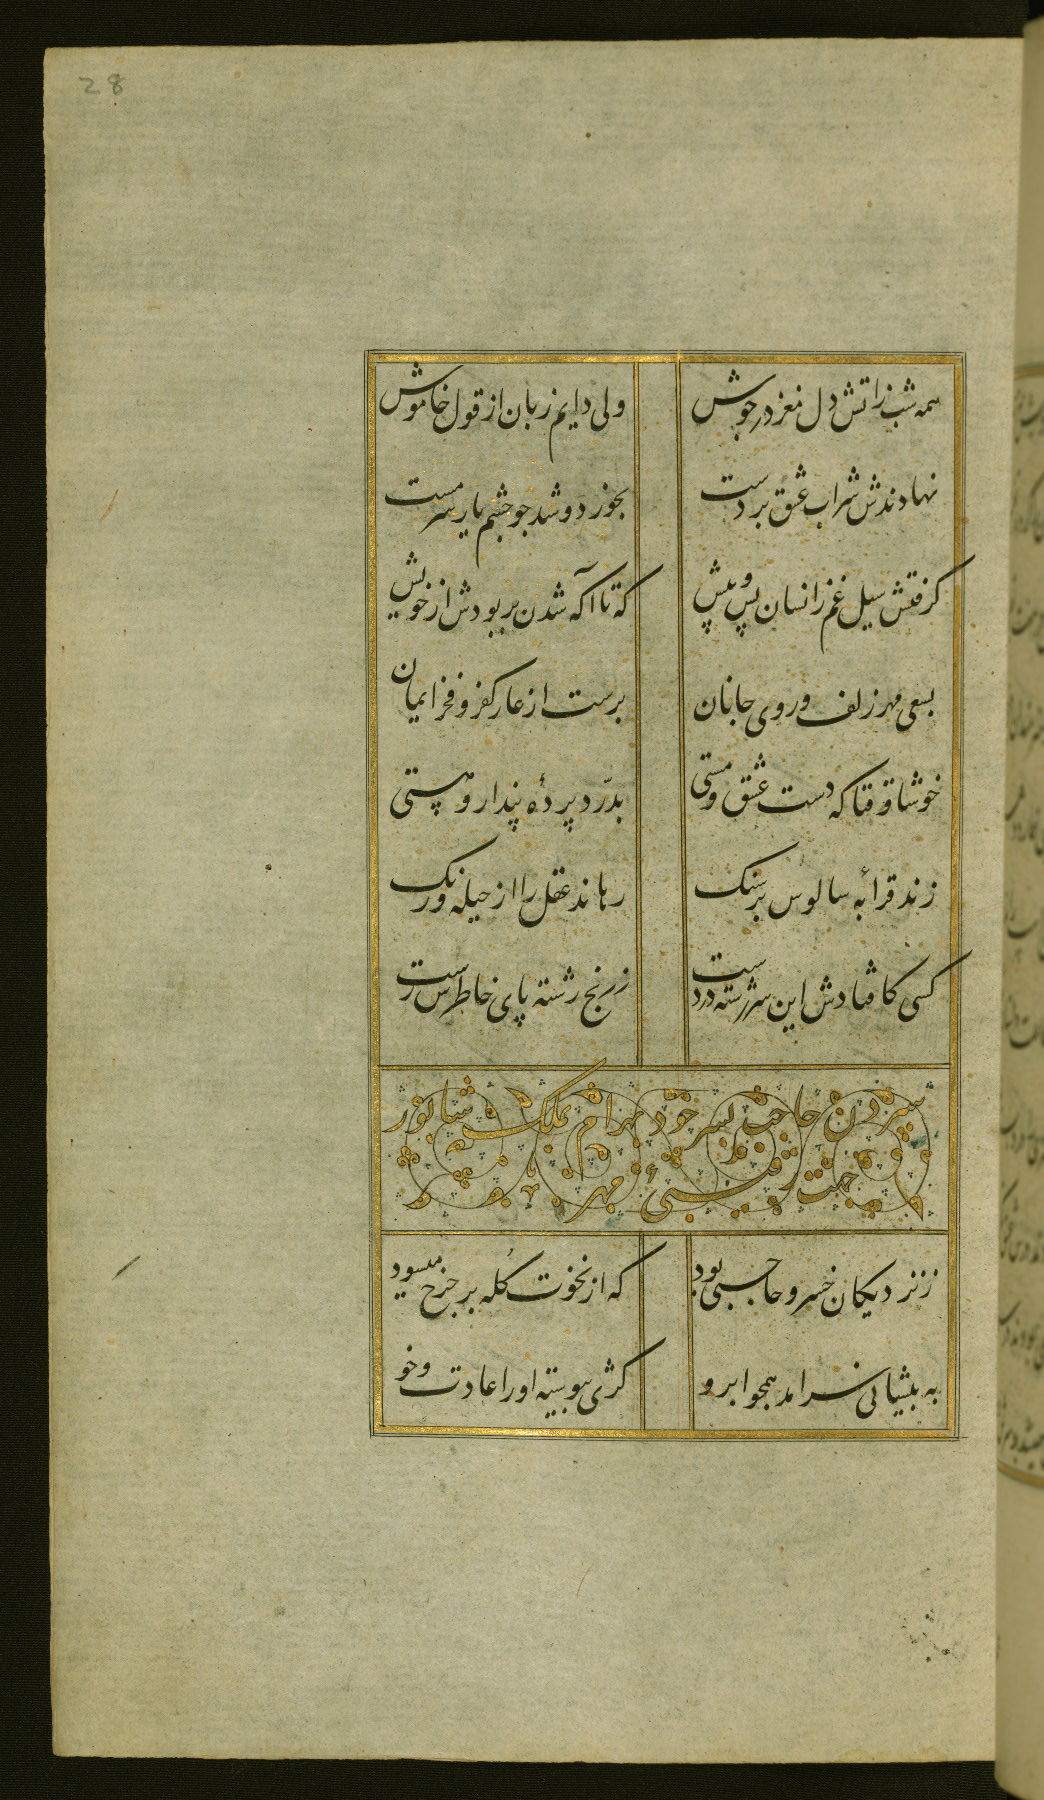 28
همه شب زاتش دل مغز در جوش ولی دایم زبان از قول خاموش
نهادندش شراب عشق بر دست بخورد و شد جو جشم یار سرمست
کرفتش سیل غم زانسان پس و پیش که تا اکه شدن بربودش از خویش
بسعی مهر زلف و روی جانان برست از عار کفر و فخر ایمان
خوشا وقتا که دست عشق و مستی بدرّد پردهٔ پندار و هستی
زند قرابهٔ سالوس بر سنک رهاند عقل را از حیله و رنک
کسی کافتادش این سررشته در دست ز رنج رشته پای خاطرش رست
سپردن حاجب پسر خود بهرام بملک شابور
جهت رفیقئ مهر
ز نزدیکان خسرو حاجبی بود که از نخوت کُله بر جرخ میسود
به پیشانی سرامد همجو ابرو کژی پیوسته او را عادت و خو